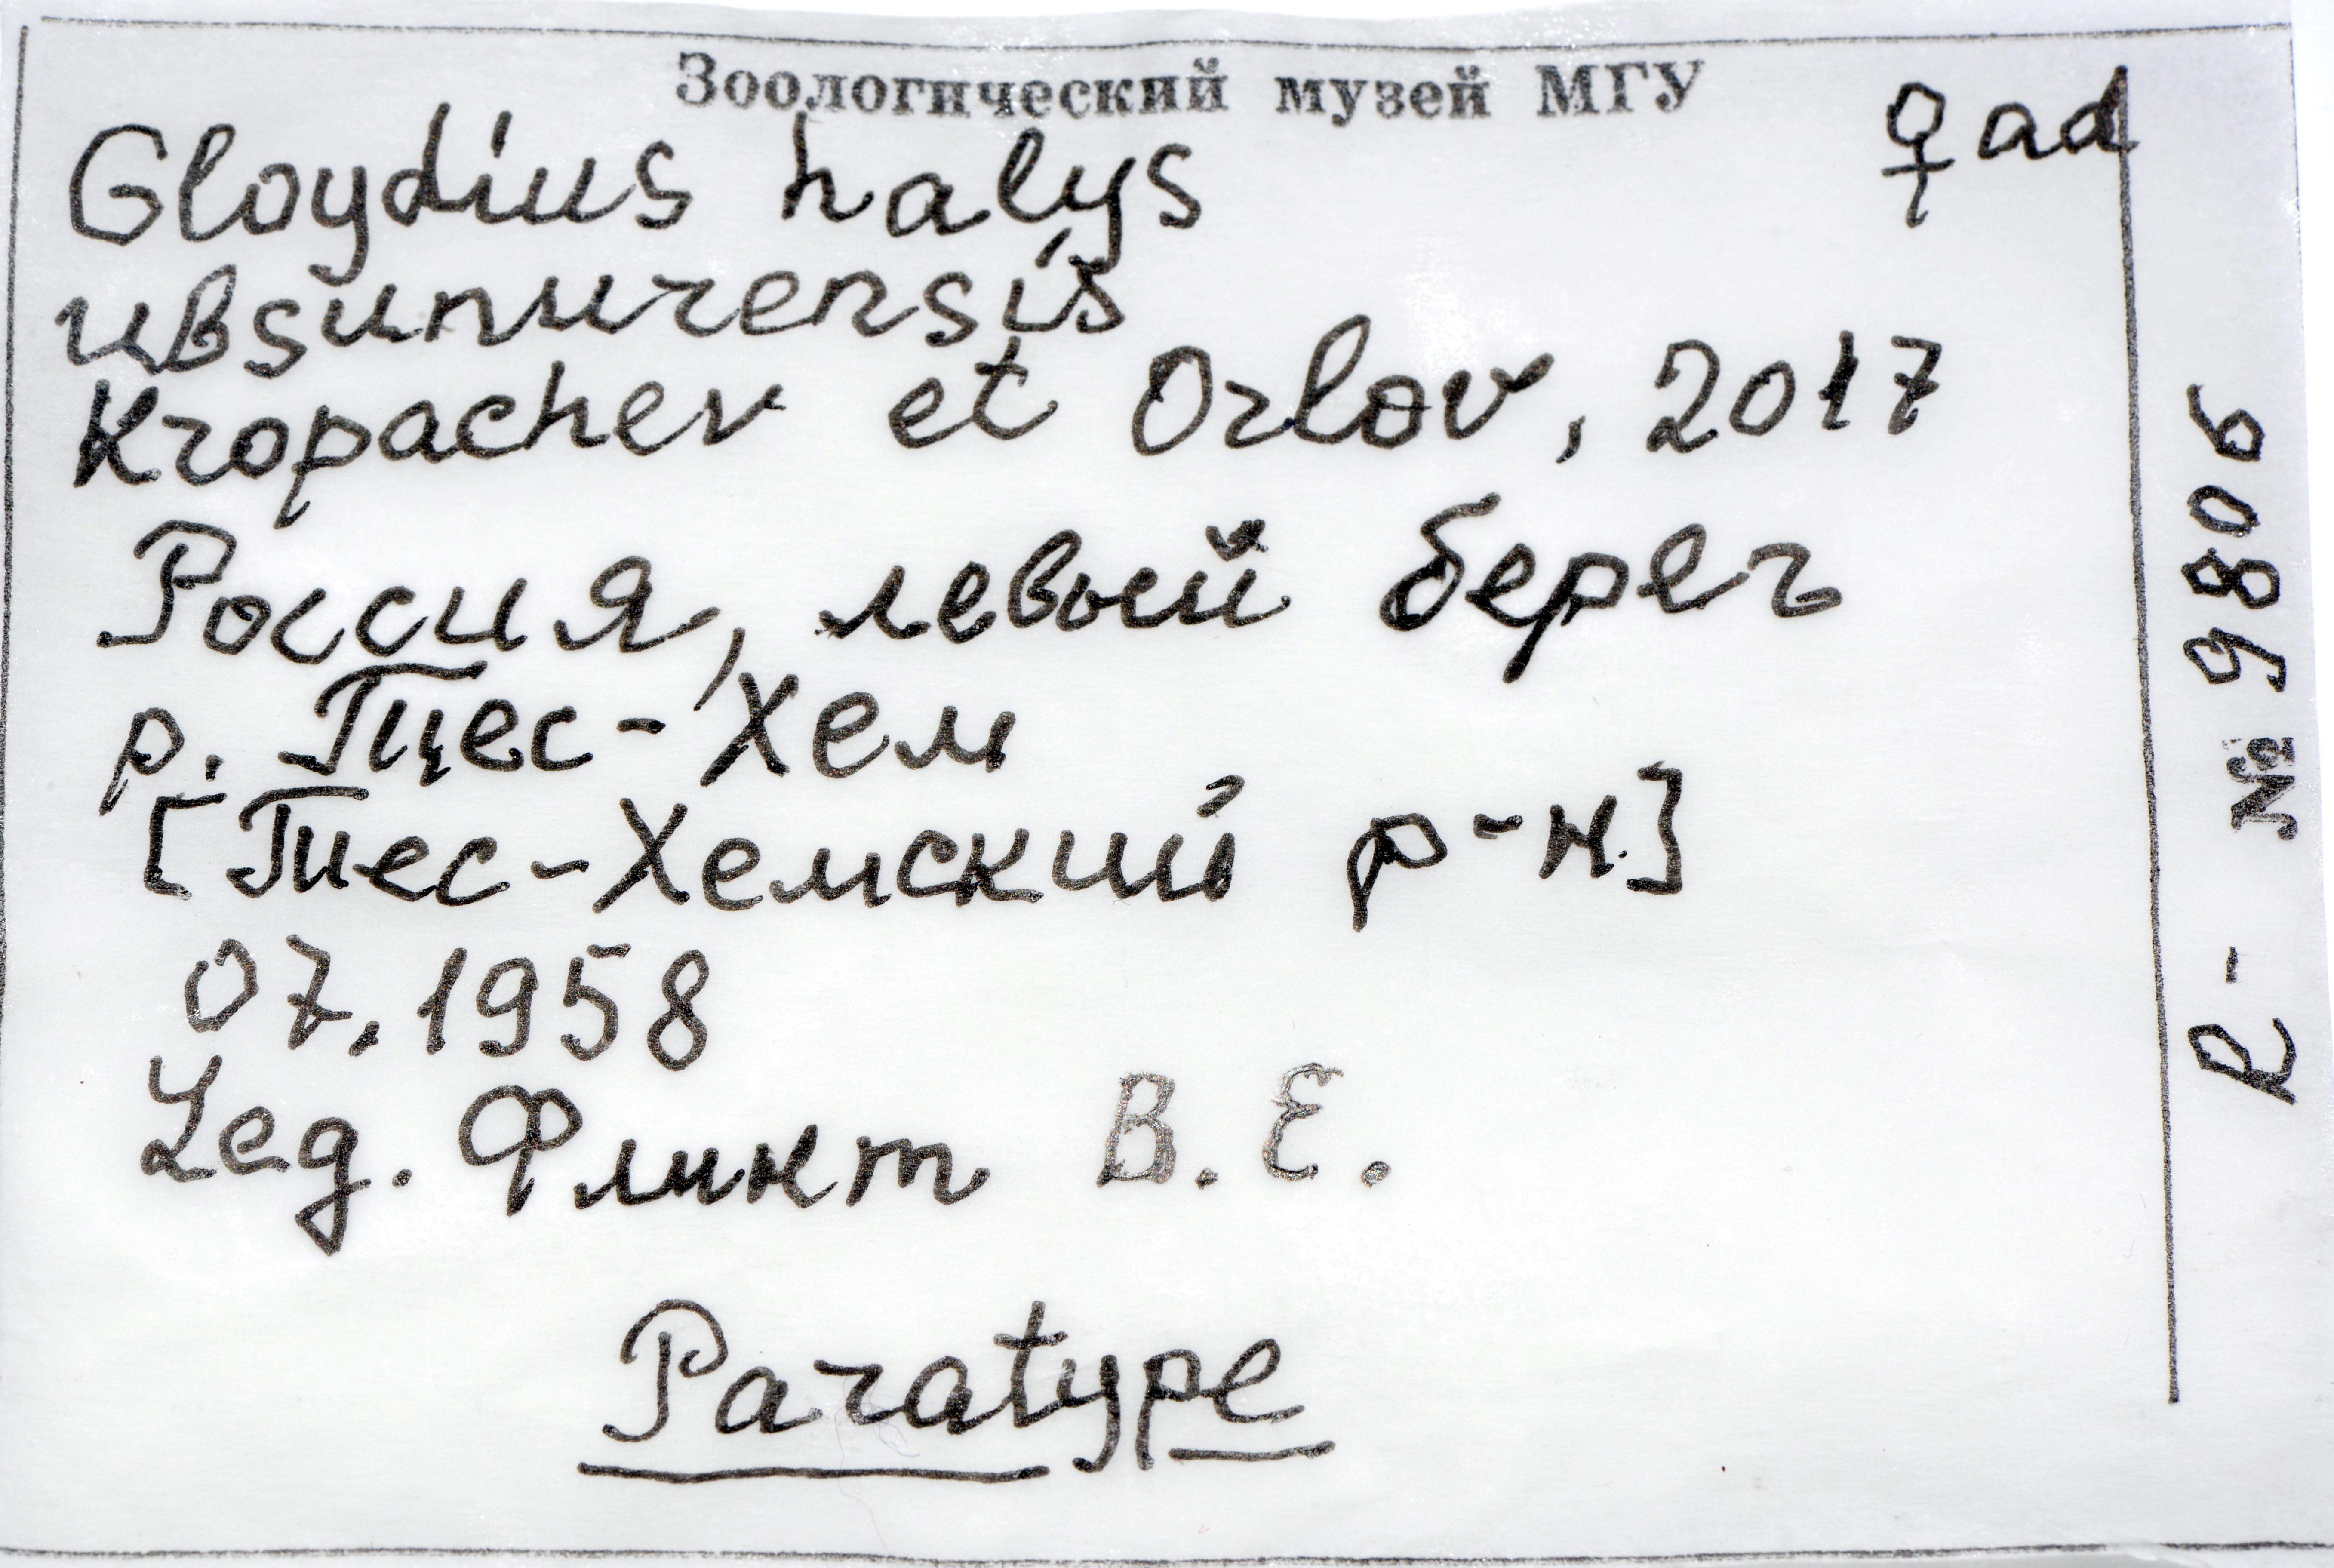 Зоологический музей МГУ
♀ ad
Gloydius halys
ubsunurensis
Kropachev et Orlov, 2017
Россия, левый берег
р. Тес-Хем
[Тес-Хемский р-н]
07.1958
Leg. Флинт В.Е.
Paratype
R- № 9806